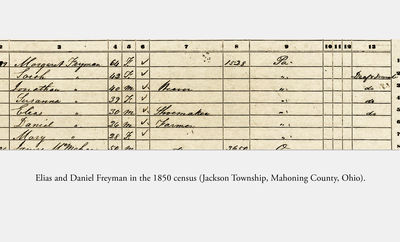 2 3 4 5 6 7 8 9 10 11 12 13
Margaret Freyman 64 F 1528 Pa.
42 F " Deaf & dumb
Jonathan " 40 m " do
Susanna " 39 F " do
Elias " 30 m Shoemaker " do
Daniel " 26 m Farmer "
Mary " 28 F "
Elias and Daniel Freyman in the 1850 census (Jackson Township, Mahoning County, Ohio).